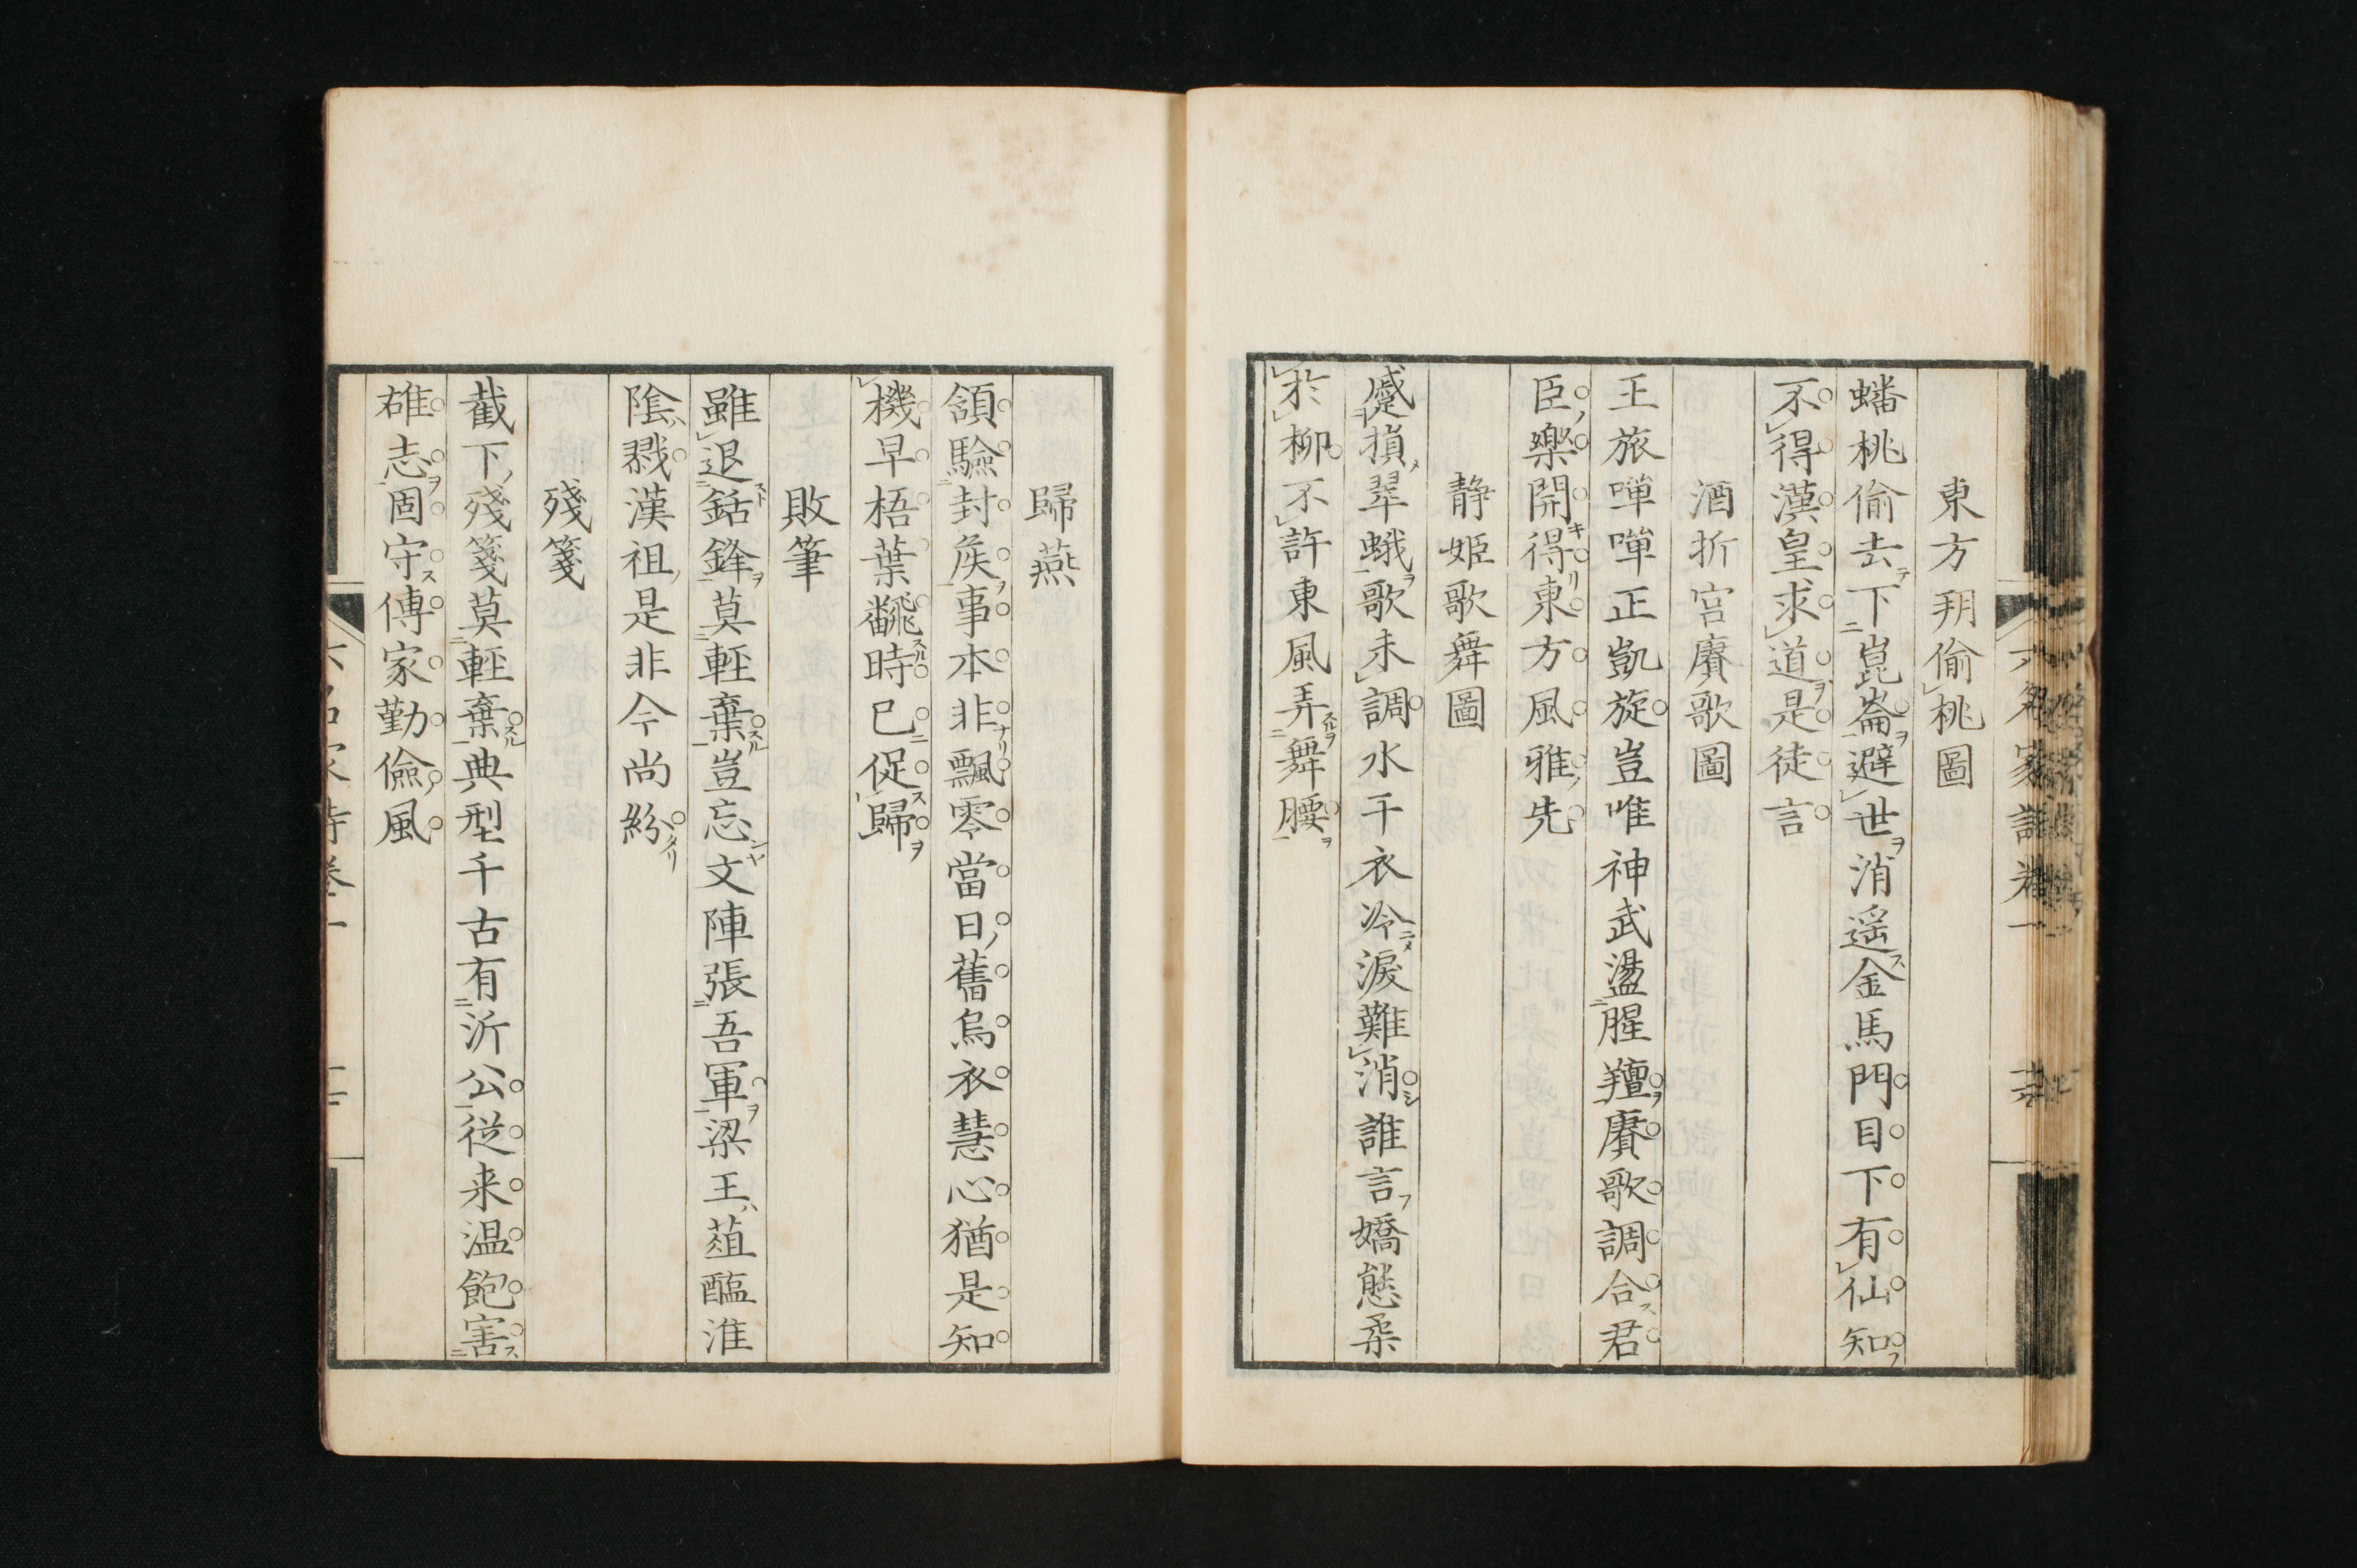 東方朔偷桃圖
蟠桃偷去下崑崙避世消遥金馬門目下有仙知
不得漢皇求道是徒言
酒折宮賡歌圖
王旅嘽嘽正凱旋豈唯神武盪腥羶賡歌調合君
臣樂開得東方風雅先
静姫歌舞圖
蹙損翠蛾歌未調水干衣冷淚難消誰言嬌態柔
於柳不許東風弄舞腰
六名家詩卷一
歸燕
頷驗封侯事本非飄零當日舊烏衣慧心猶是知
機早梧葉飜時已促歸
敗筆
雖退銛鋒莫輕棄豈忘文陣張吾軍梁王葅醢淮
陰戮漢祖是非今尚紛
殘箋
截下殘箋莫輕棄典型千古有沂公従来温飽害
雄志固守傳家勤儉風
六名家詩卷一